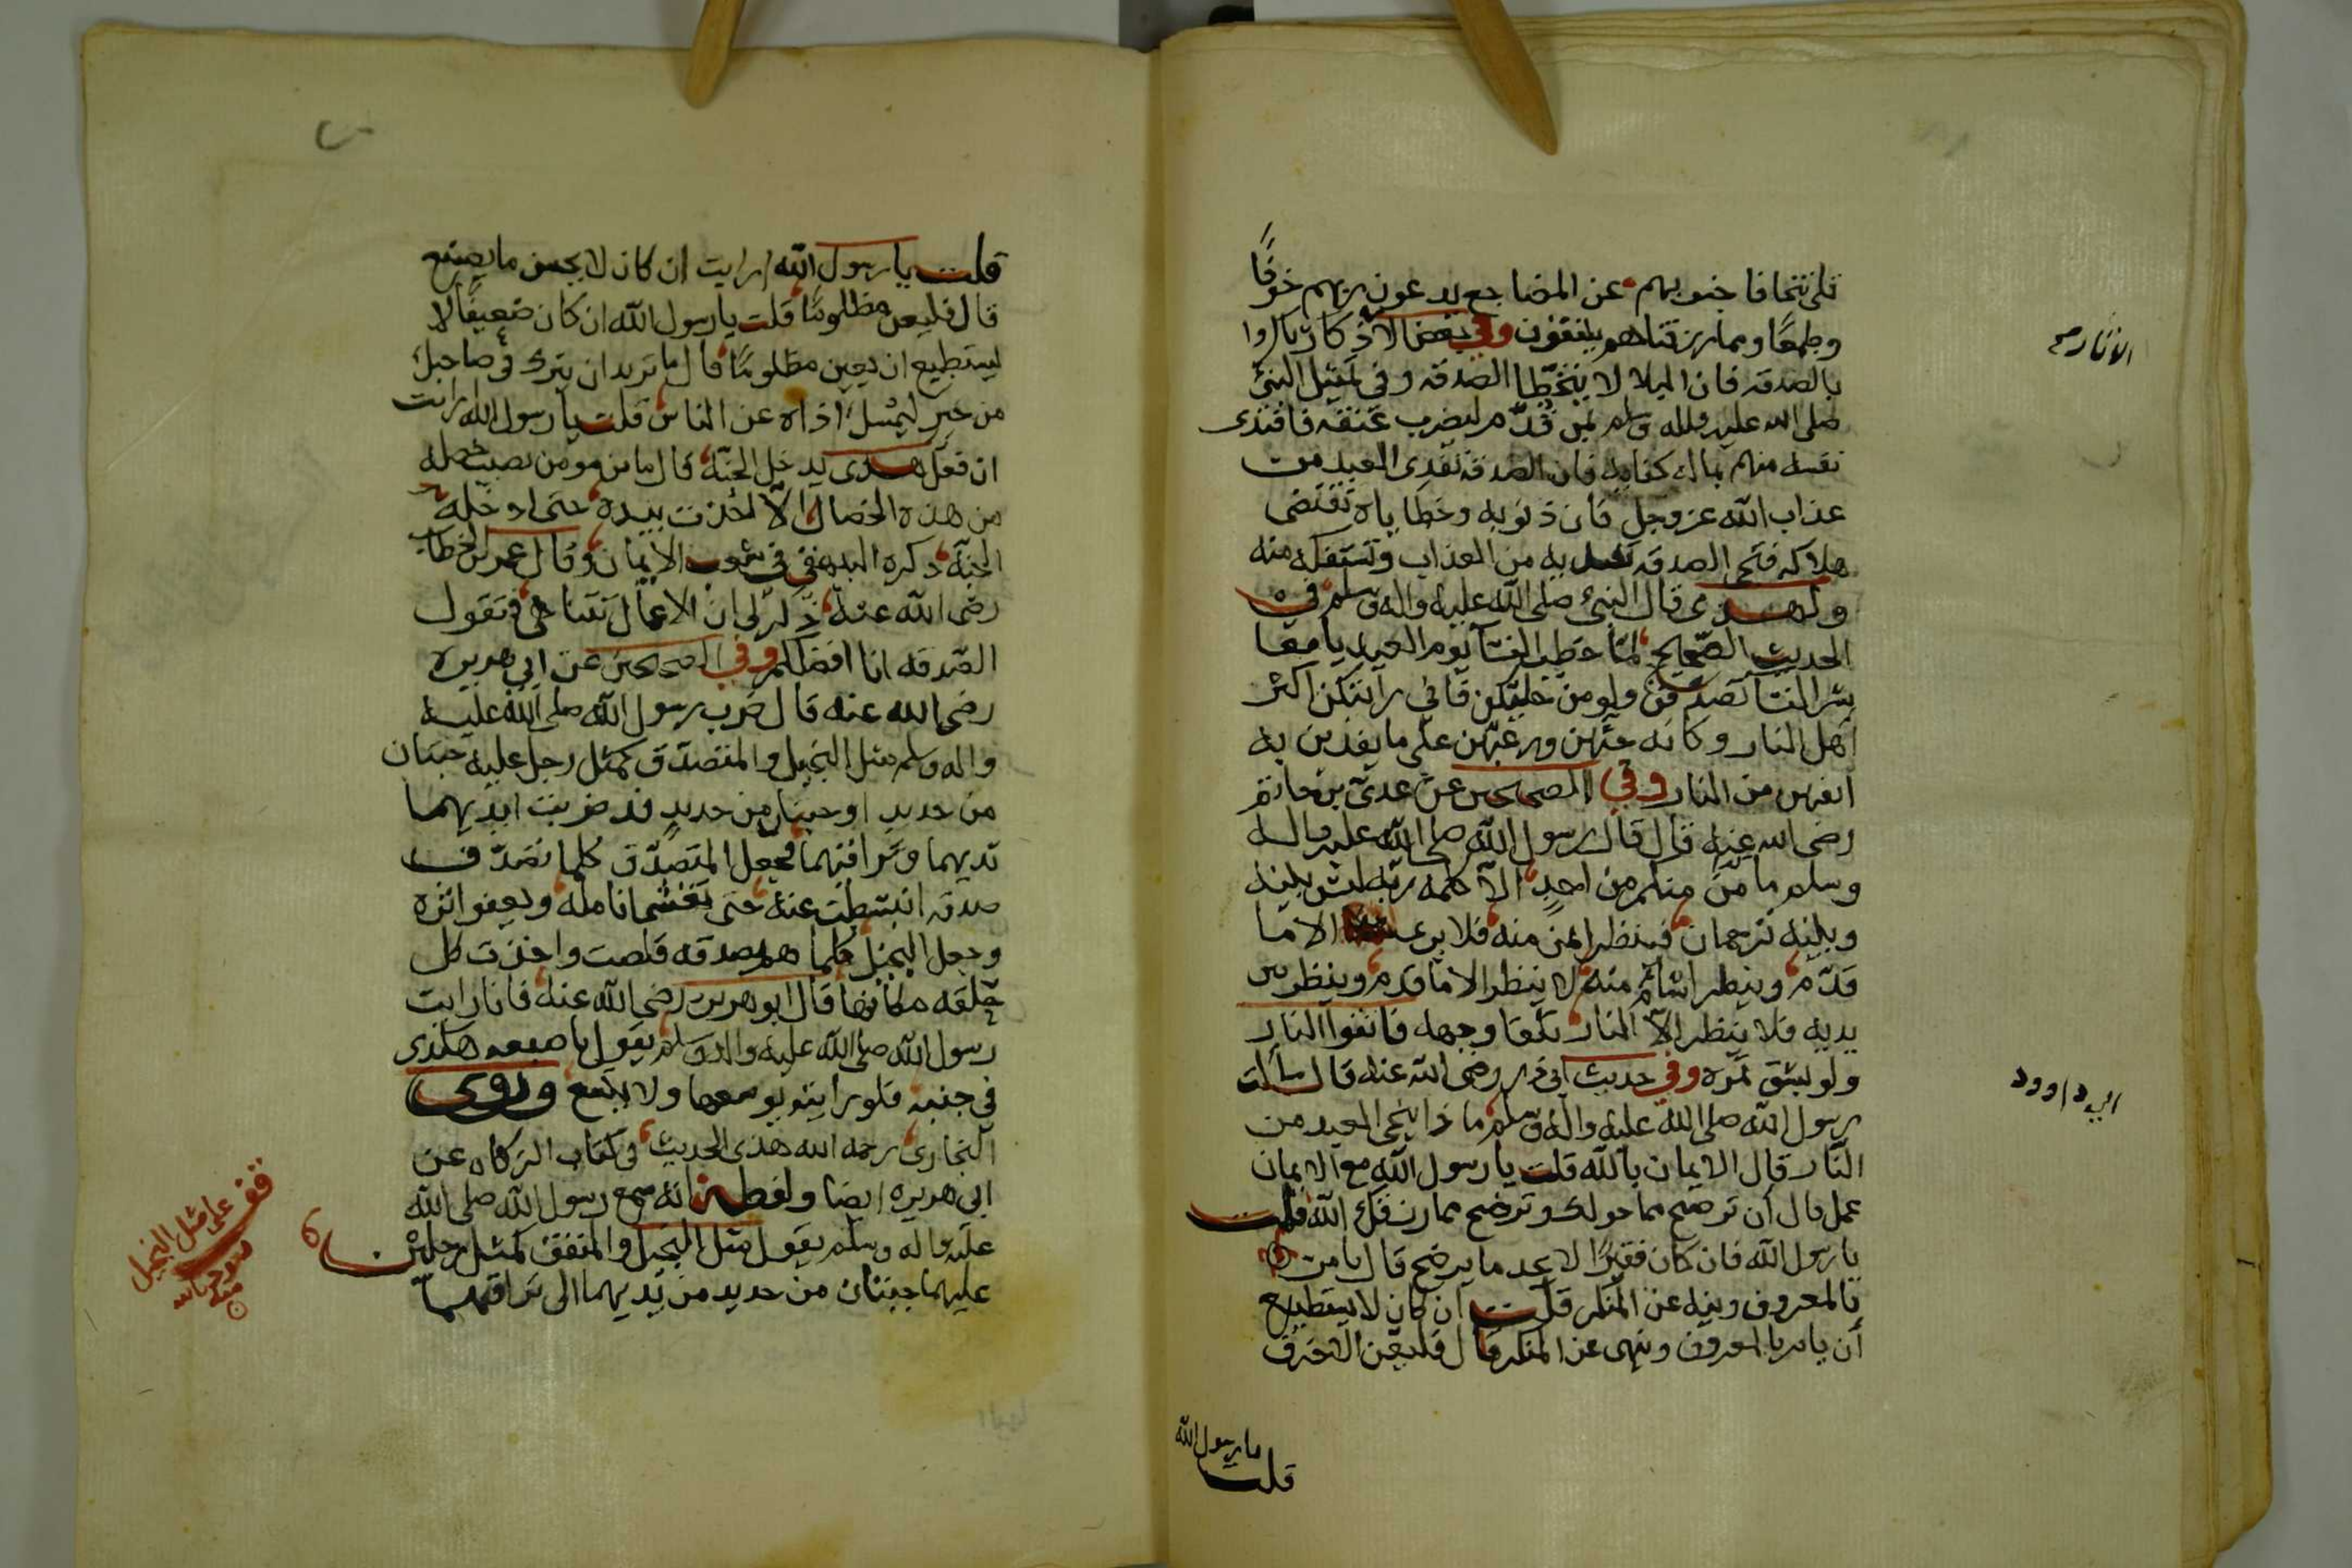 تلى تتجافا جنوبهم عن المضاجع يدعون ربهم خوفًا
وطمعًا ومما رزقناهم ينفقون وفي بعض الاذكار باكروا
بالصدقه فان البلا لا يتخطا الصدقه وفي تمثيل النبيّ
صلى الله عليه واله وسلم لمن قُدّم ليضرب عنقه فافتدى
نفسه منهم بماله كفايه فان الصدقه تفدى العبد من
عذاب الله عز وجل فان ذنوبه وخطاياه تقتضى
هلاكه فتجي الصدقه تفديه من العذاب وتستفكه منه
ولهذى قال النبيُ صلى الله عليه واله وسلم في
الحديث الصّحيح لمّا خطب النسآ يوم العيد يا معا
شر النسآ تصدقن ولو من حليكن فاني رايتكن اكثر
اهل النار وكانه حثهن ورغبهن على ما يفدين به
انفسهن من النار وفي الصحيحين عن عدى بن حاتم
رضى الله عنه قال قال رسول الله صلى الله عليه واله
وسلم ما منكم من احدٍ الّا سيكلمه ربه ليس بينه
وبينه ترجمان فينظر ايمن منه فلا يرى الا ما
قدّم وينظر اشام منه لا ينظر الا ما قدم وينظر بين
يديه فلا ينظر الّا النار تلقا وجهه فاتقوا النار
ولو بشق تمره وفي حديث ابي ذر رضى الله عنه قال سألت
رسول الله صلى الله عليه واله وسلم ماذا ينجى العبد من
النّار قال الايمان بالله قلت يا رسول الله مع الايمان
عمل قال أن ترضخ مما خولك وترضخ مما رزقك الله قلت
يا رسول الله فان كان فقيرًا لا يجد ما يرضخ قال يامر
بالمعروف وينه عن المنكر قلت ان كان لا يستطيع
أن يامر بالمعروف وينهى عن المنكر قال فليعن الاخرق
قلت يا رسول الله
الاثار صح
ابي داوود
قلت يا رسول الله ارايت ان كان لا يحسن ما يصنع
قال فليعن مظلومًا قلت يا رسول الله ان كان ضعيفًا لا
يستطيع ان يعين مظلومًا قال ما تريد ان يترك في صاحبك
من خيرٍ ليمسك اذاه عن الناس قلت يا رسول الله ارايت
ان فعل هذى يدخل الجنّه قال ما من مومن يصيب خصله
من هذه الخصال الّا اخذت بيده حتى ادخلته
الجنّه ذكره البيهقي في شعب الايمان وقال عمر بن الخطاب
رضى الله عنه ذُكر لى ان الاعمال تتباهى فتقول
الصّدقه انا افضلكم وفي الصحيحين عن ابي هريره
رضى الله عنه قال ضرب رسول الله صلى الله عليه
واله وسلم مثل البخيل والمتصدّق كمثل رجل عليه جبتان
من حديد او جنتان من حديدٍ قد ضربت ايديهما
ثديهما وتراقيهما فجعل المتصدّق كلما تصدّق
صدقه انبسطت عنه حتى تغشى انامله وتعفو اثره
وجعل البخيل كلما هم بصدقه قلصت واخذت كل
حلقه مكانها قال ابو هريره رضى الله عنه فانا رايت
رسول الله صلى الله عليه واله وسلم يقول باصبعه هكذى
في جنبه فلو رايته يوسعها ولا تتسع وروى
البخارى رحمه الله هذى الحديث في كتاب الزكاه عن
ابي هريره ايضا ولفظه انه سمع رسول الله صلى الله
عليه واله وسلم يقول مثل البخيل والمنفق كمثل رجلين
عليهما جبتان من حديد من ثديهما الى تراقيهما
قف على مثل البخيل